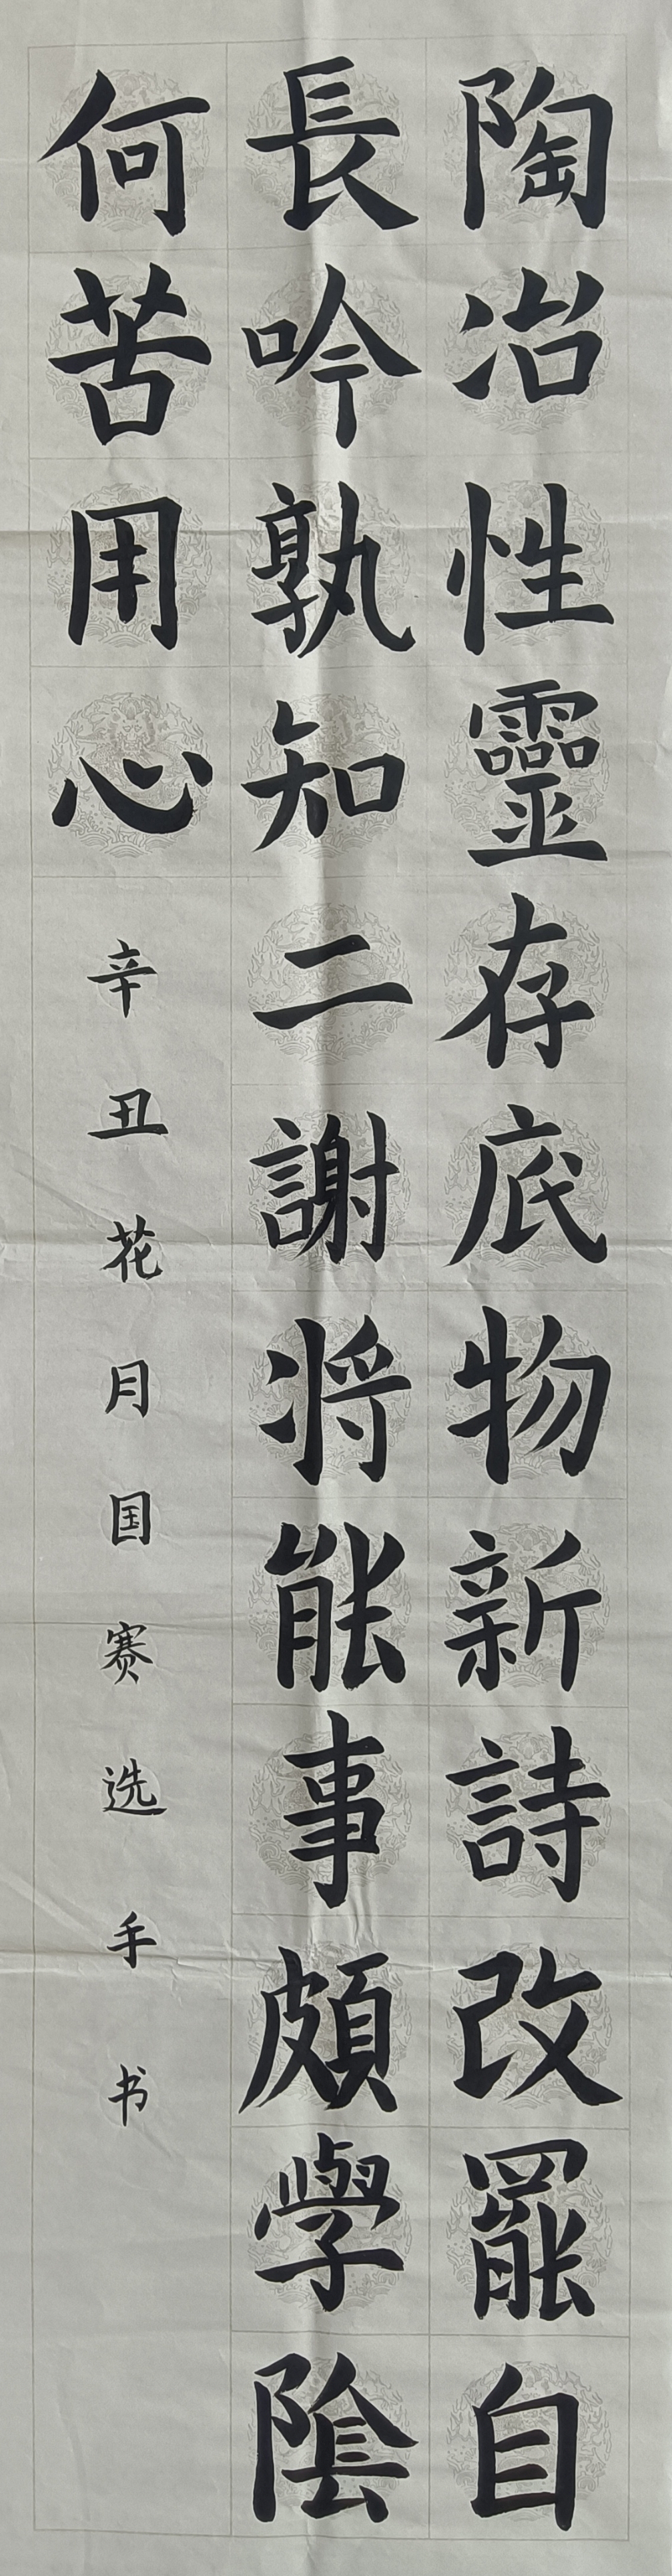 陶冶性靈存底物新詩改罷自
長吟孰知二謝将能事頗學陰
何苦用心
辛丑花月国赛选手书